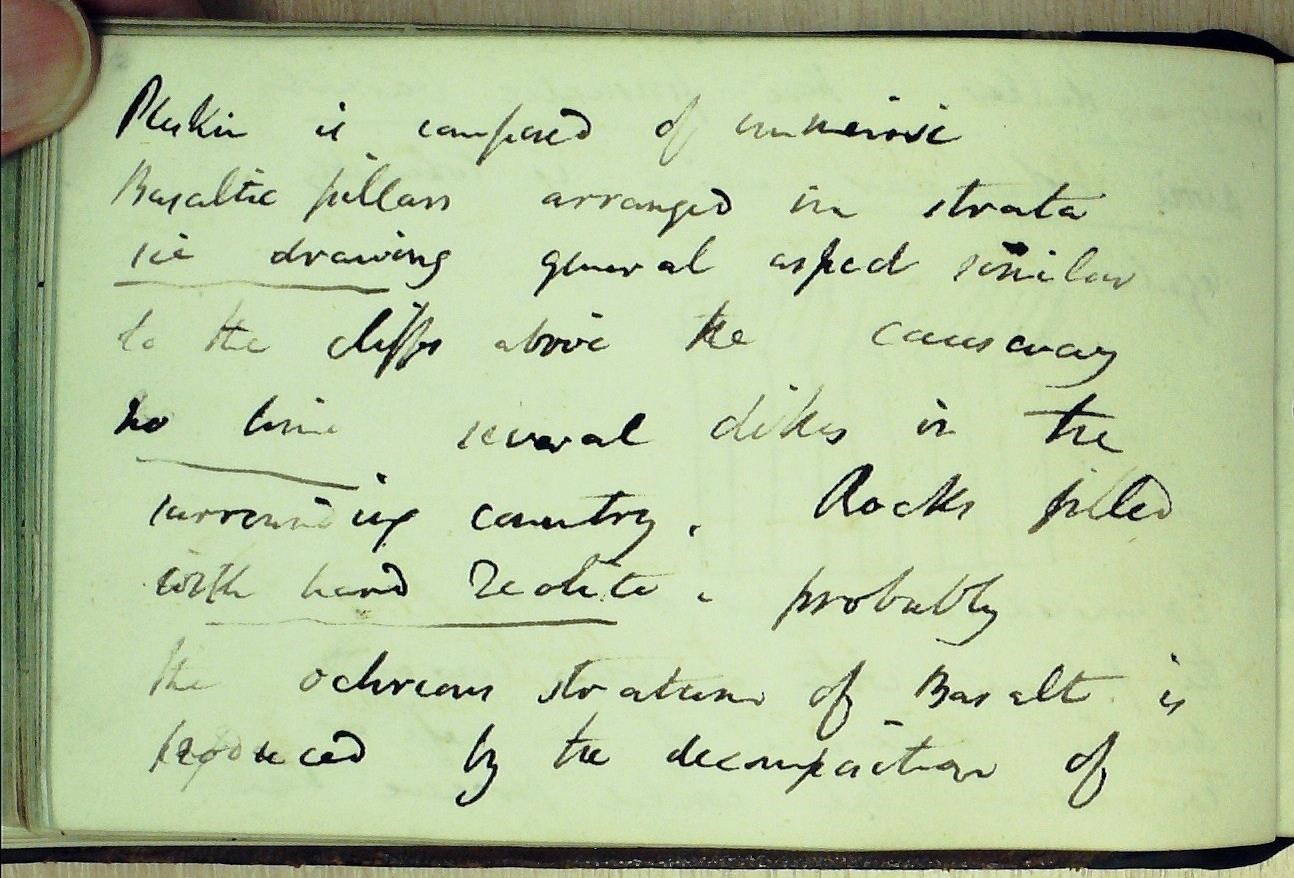 Pleskin is composed of immense
Basaltic pillars arranged in strata
see drawing general aspect similar
to the cliffs above the causeway
no lime several dikes in the
surrounding country. Rocks filled
with hard Zeolite. probably
the ochreous stratum of Basalt is
produced by the decomposition of